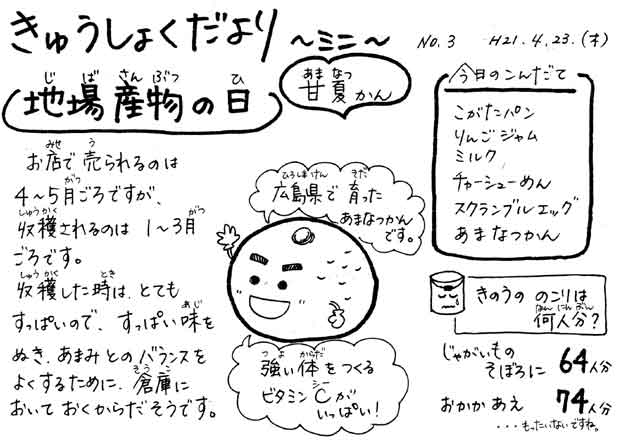 きゅうしょくだより ～ミニ～
No.3 H21.4.23.(木)
地場産物の日
甘夏かん
お店で売られるのは
4～5月ごろですが、
収穫されるのは 1～3月
ごろです。
収穫した時は、とても
すっぱいので、すっぱい味を
ぬき、あまみとのバランスを
よくするために、倉庫に
おいておくからだそうです。
広島県で育った
あまなつかん
です。
強い体をつくる
ビタミンCが
いっぱい!
今日のこんだて
こがたパン
りんごジャム
ミルク
チャーシューめん
スクランブルエッグ
あまなつかん
きのうの のこりは
何人分?
じゃがいもの
そぼろに 64人分
おかかあえ 74人分
・・・もったいないですね。